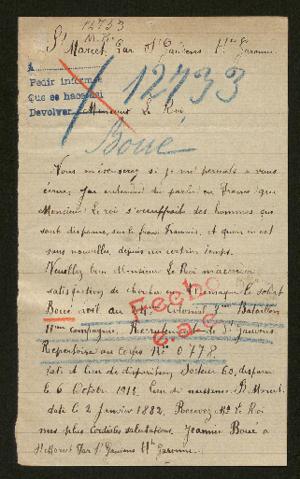 12733
St Marcet par St Gaudens Hte Gne
Pedir informes
Que se haces
Devolver
12733
Monsieur Le Roi
Boué
Vous m'excuserez si je me permets a vous
écrire, j'ai entendu parler en France que
Monsieur Le roi s'occuppait des hommes qui
sont disparus, sur le front Francais, et qu'on en est
sans nouvelles, depuis un certain temps.
Veuillez bien Monsieur Le Roi m'accorder
satisfaction, de chercher en Allemagne le soldat
Boué, Colonial Bataillon
11eme compagnie, Recrutement St Gaudens
Repertoire au Corps No 0778
Fecho
date et Lieu de disparition, Secteur 60, disparu
le 6 Octobre 1915, Lieu de naissance St Marcet
date le 2 Janvier 1882, Recevez Mr Le Roi
mes plus cordiales salutations. Jeannin Boué à
St Marcet Par St Gaudens Hte Garonne